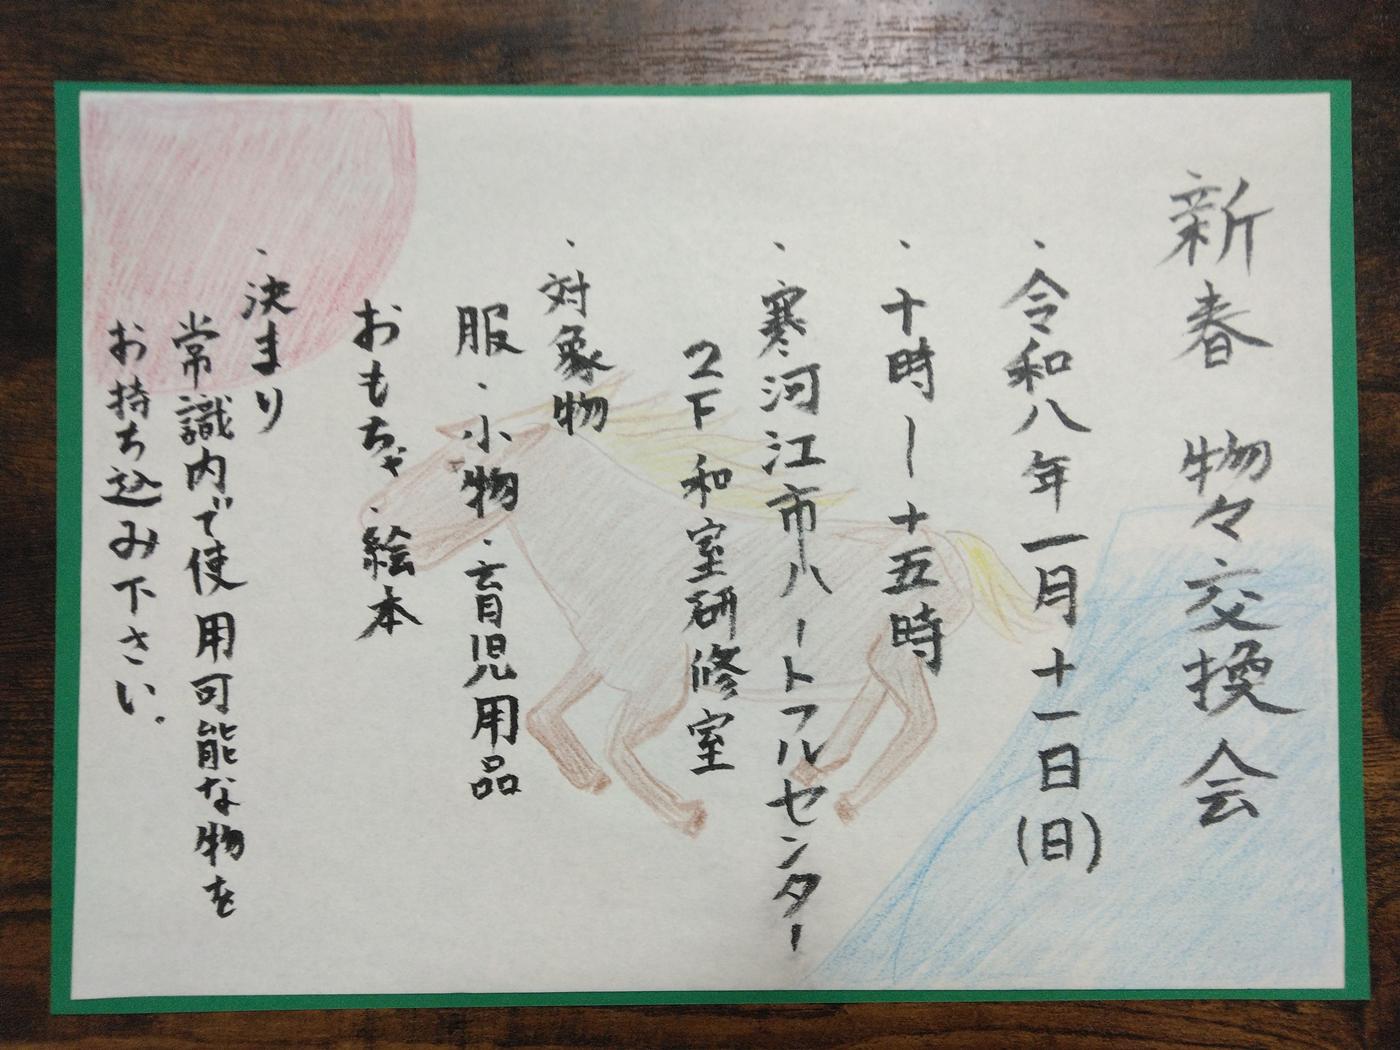 新春 物々交換会
・令和八年一月十一日(日)
・十時〜十五時
・寒河江市ハートフルセンター
2F 和室研修室
・対象物
服・小物・育児用品
おもちゃ・絵本
・決まり
常識内で使用可能な物を
お持ち込み下さい.